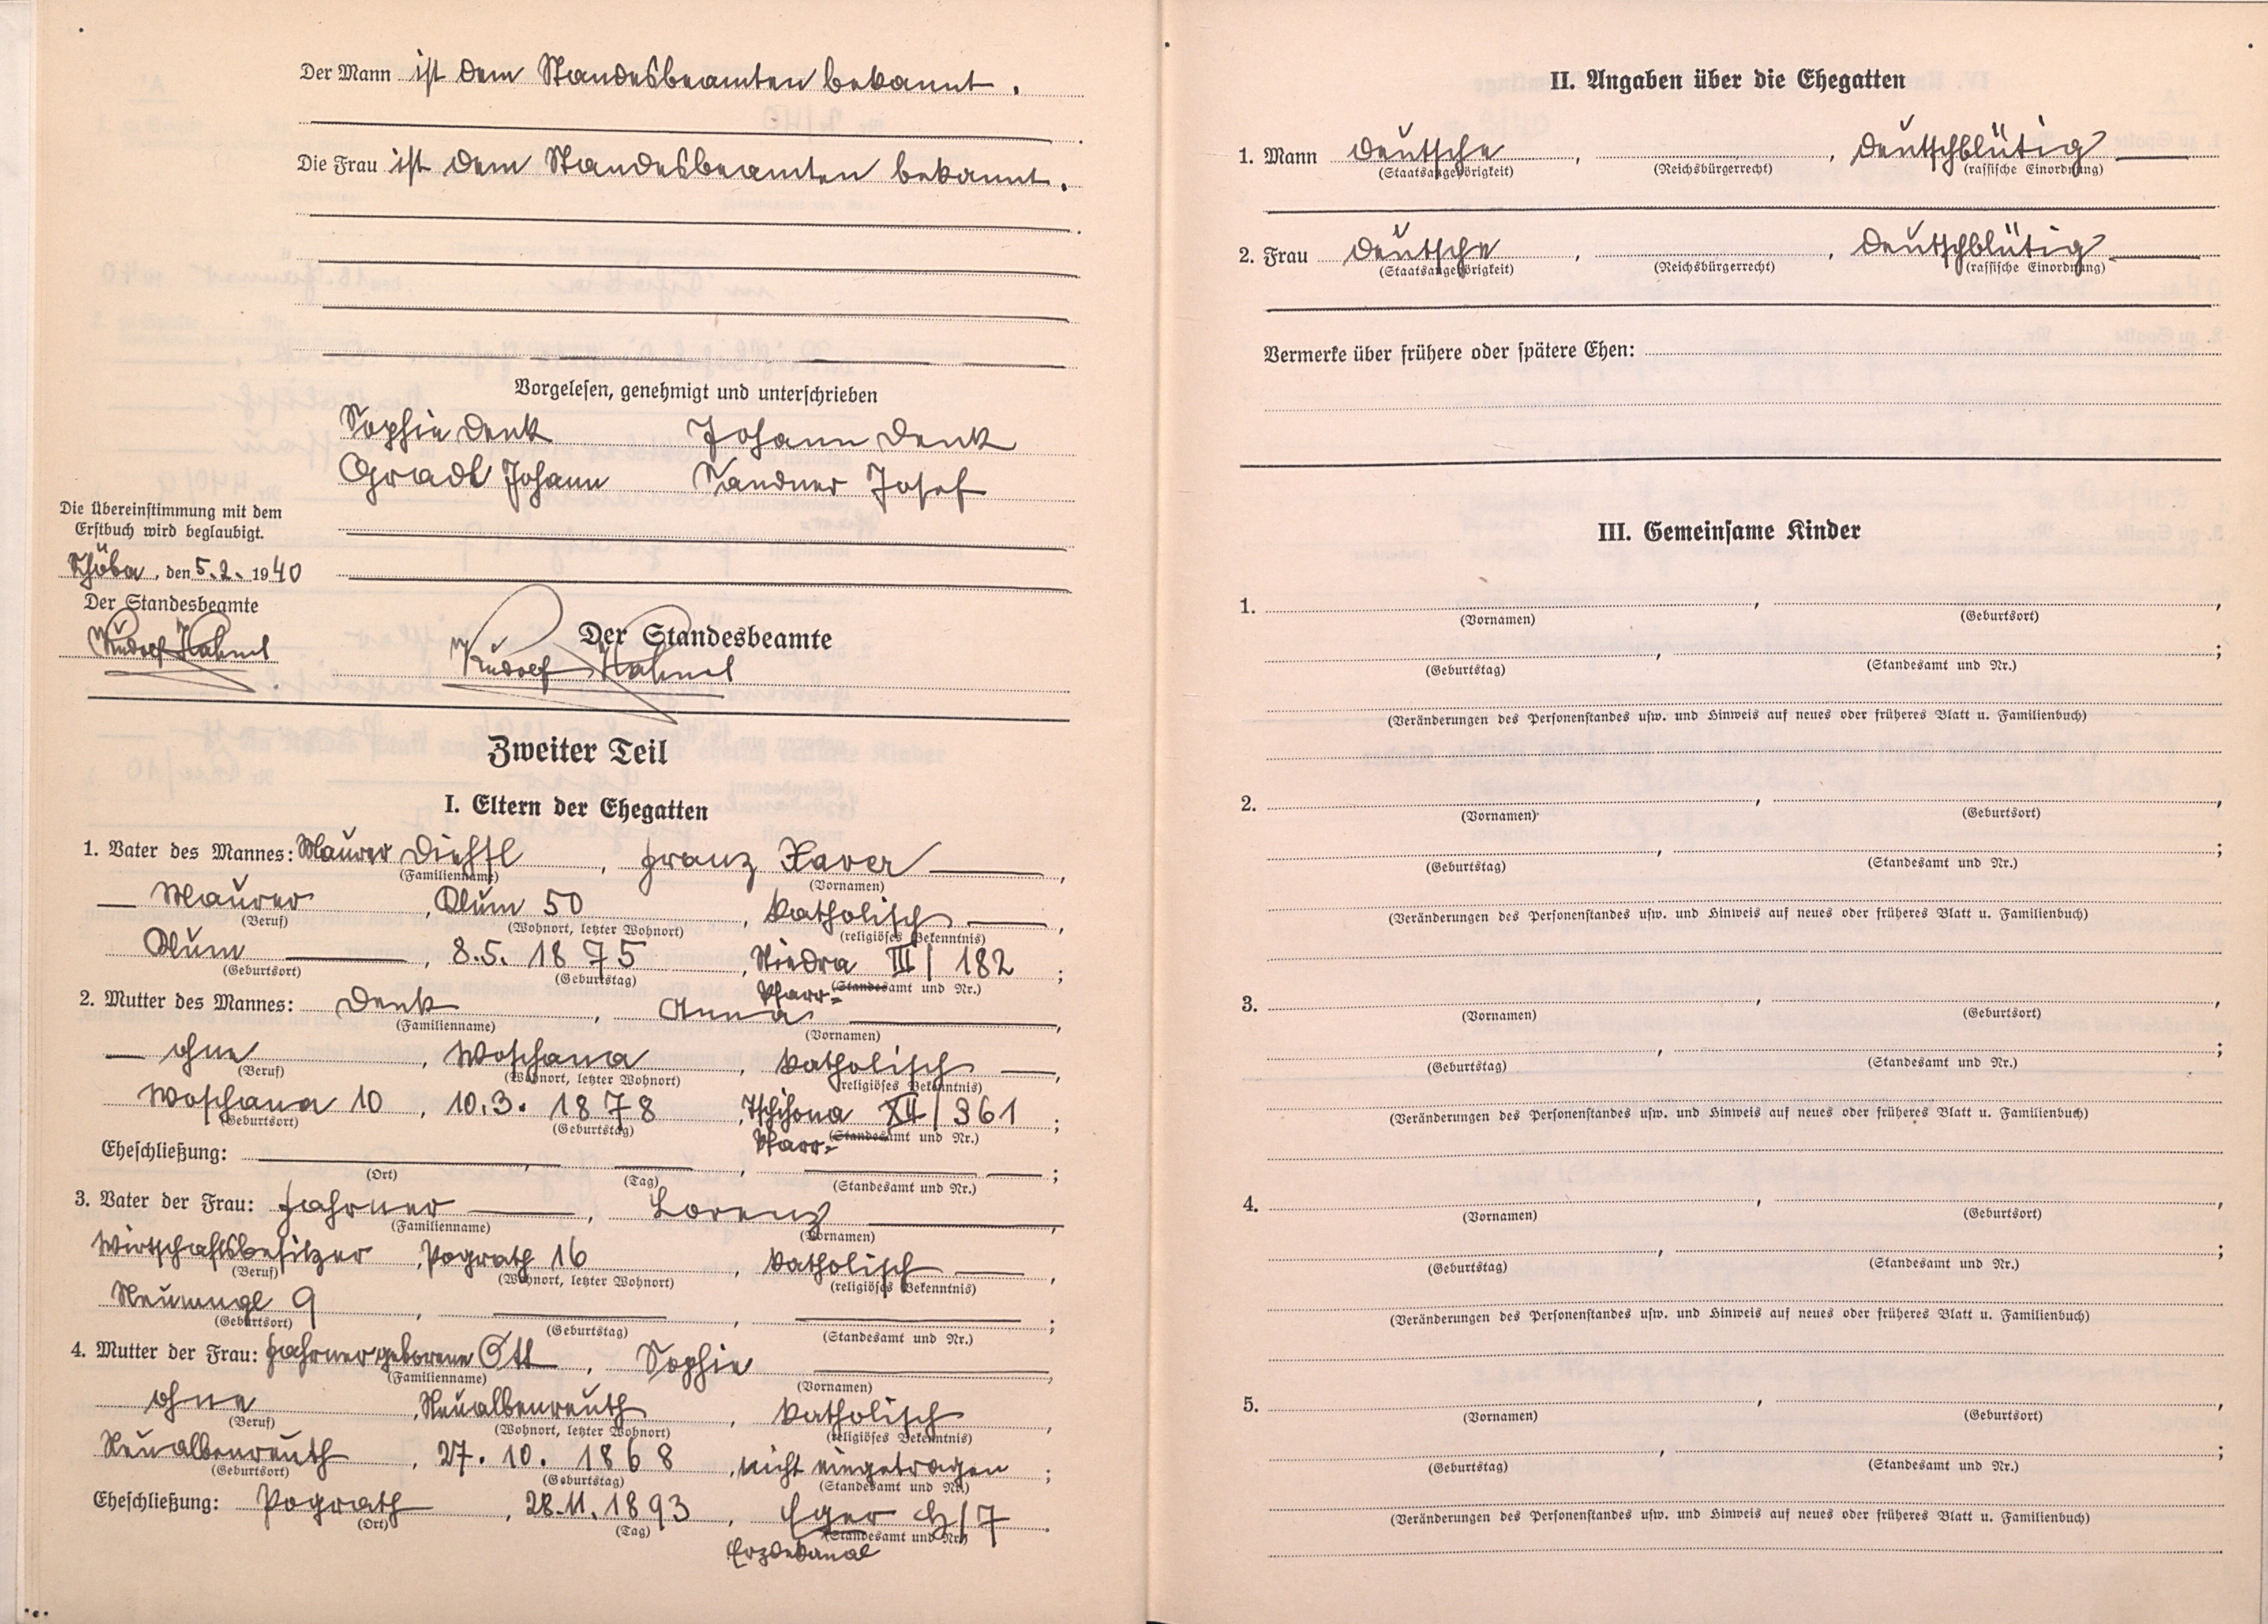 Der Mann ist dem Standesbeamten bekannt.
Die Frau ist dem Standesbeamten bekannt.
Vorgelesen, genehmigt und unterschrieben
Sophie Denk Johann Denk
Gradl Johann Sandner Josef
Die Übereinstimmung mit dem
Erstbuch wird beglaubigt.
Schöba, den 5.2. 1940
Der Standesbeamte
Rudolf Hahnel
Der Standesbeamte
Rudolf Hahnel
Zweiter Teil
I. Eltern der Ehegatten
1. Vater des Mannes: Maurer Diessl, Franz Xaver
(Familienname) (Vornamen)
Maurer, Ulum 50, katholisch
(Beruf) (Wohnort, letzter Wohnort) (religiöses Bekenntnis)
Ulum, 8.5. 1875, Niedra III/182;
(Geburtsort) (Geburtstag) (Standesamt und Nr.)
Pfarr-
2. Mutter des Mannes: Denk, Anna
(Familienname) (Vornamen)
ohne, Woschana, katholisch
(Beruf) (Wohnort, letzter Wohnort) (religiöses Bekenntnis)
Woschana 10, 10.3. 1878, XII/361;
(Geburtsort) (Geburtstag) (Standesamt und Nr.)
Pfarr-
Eheschließung:
(Ort) (Tag) (Standesamt und Nr.)
3. Vater der Frau: Fahrner, Lorenz
(Familienname) (Vornamen)
Wirtschaftsbesitzer, Pograth 16, katholisch,
(Beruf) (Wohnort, letzter Wohnort) (religiöses Bekenntnis)
9
(Geburtsort) (Geburtstag) (Standesamt und Nr.)
4. Mutter der Frau: Fahrner geborene Ott, Sophie
(Familienname) (Vornamen)
ohne, Neualbenreuth, katholisch,
(Beruf) (Wohnort, letzter Wohnort) (religiöses Bekenntnis)
Neualbenreuth, 27. 10. 1868, nicht eingetragen;
(Geburtsort) (Geburtstag) (Standesamt und Nr.)
Eheschließung: Pograth, 28.11.1893, Eger /7.
(Ort) (Tag) (Standesamt und Nr.)
Erzdekanal
II. Angaben über die Ehegatten
1. Mann deutsche, , deutschblütig
(Staatsangehörigkeit) (Reichsbürgerrecht) (rassische Einordnung)
2. Frau deutsche, , deutschblütig
(Staatsangehörigkeit) (Reichsbürgerrecht) (rassische Einordnung)
Vermerke über frühere oder spätere Ehen:
III. Gemeinsame Kinder
1. , ,
(Vornamen) (Geburtsort)
, ;
(Geburtstag) (Standesamt und Nr.)
(Veränderungen des Personenstandes usw. und Hinweis auf neues oder früheres Blatt u. Familienbuch)
2. , ,
(Vornamen) (Geburtsort)
, ;
(Geburtstag) (Standesamt und Nr.)
(Veränderungen des Personenstandes usw. und Hinweis auf neues oder früheres Blatt u. Familienbuch)
3. , ,
(Vornamen) (Geburtsort)
, ;
(Geburtstag) (Standesamt und Nr.)
(Veränderungen des Personenstandes usw. und Hinweis auf neues oder früheres Blatt u. Familienbuch)
4. , ,
(Vornamen) (Geburtsort)
, ;
(Geburtstag) (Standesamt und Nr.)
(Veränderungen des Personenstandes usw. und Hinweis auf neues oder früheres Blatt u. Familienbuch)
5. , ,
(Vornamen) (Geburtsort)
, ;
(Geburtstag) (Standesamt und Nr.)
(Veränderungen des Personenstandes usw. und Hinweis auf neues oder früheres Blatt u. Familienbuch)